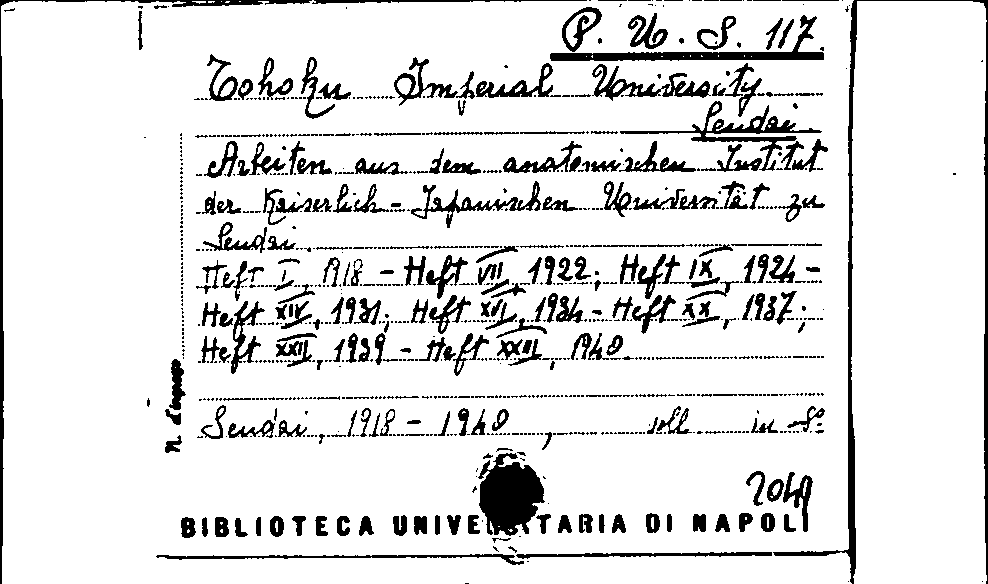 P. U. S. 117.
Tohoku Imperial University.
Sendai.
Arbeiten aus dem anatomischen Institut
der Kaiserlich - Japanischen Universität zu
Sendai.
Heft I, 1918 - Heft VII, 1922; Heft IX, 1924 -
Heft XIV, 1931; Heft XVI, 1934 - Heft XX, 1937;
Heft XXII, 1939 - Heft XXIII, 1940.
N. d'ingresso
Sendai, 1918 - 1940, voll. in 8°
BIBLIOTECA UNIVERSITARIA DI NAPOLI